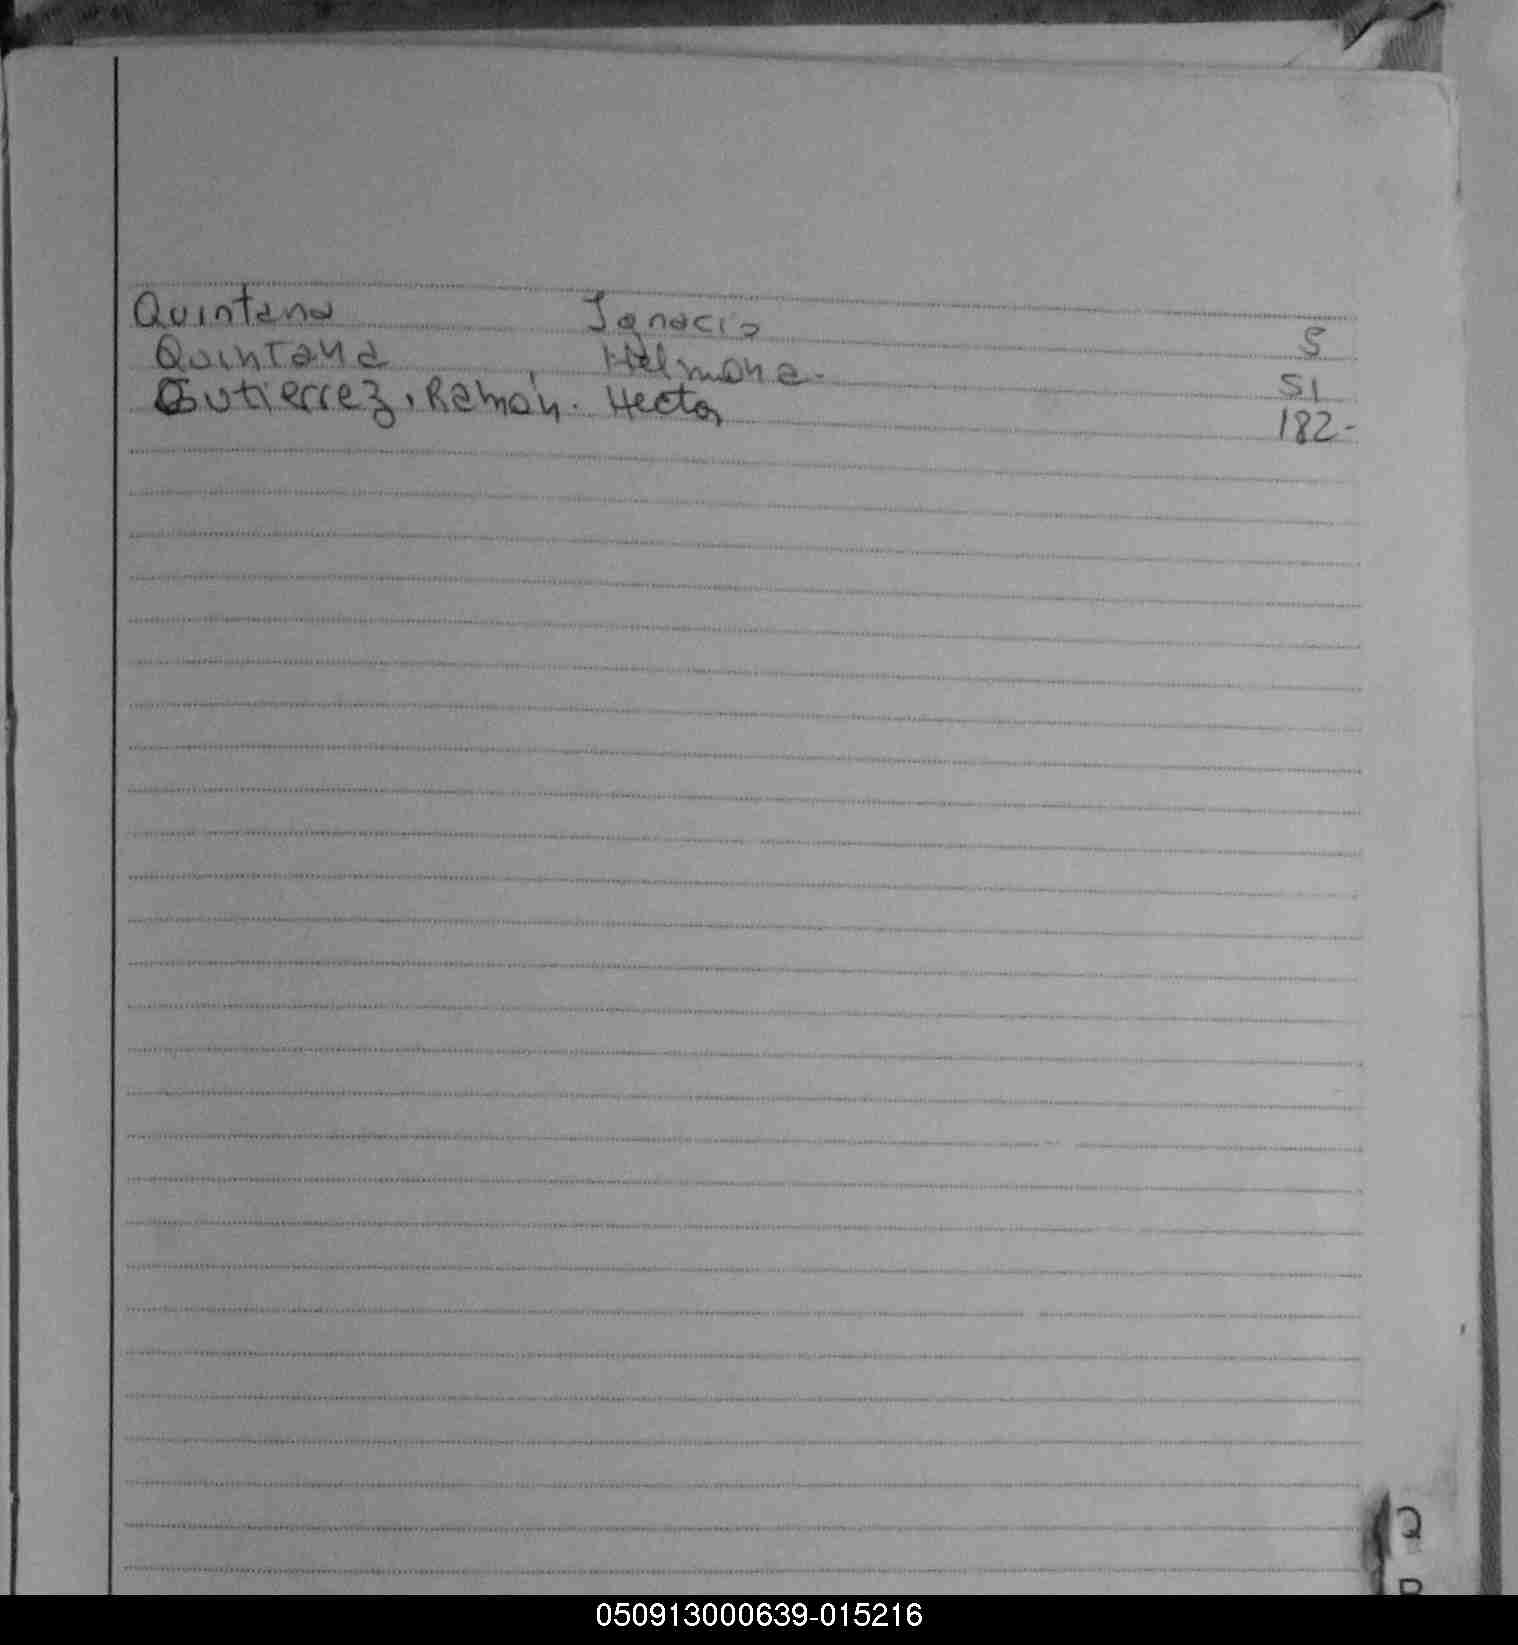 Quintana Ignacio 5
Quintana Helmana. 51
Gutierrez, Ramón. Hector 182-
Q
R
050913000639-015216